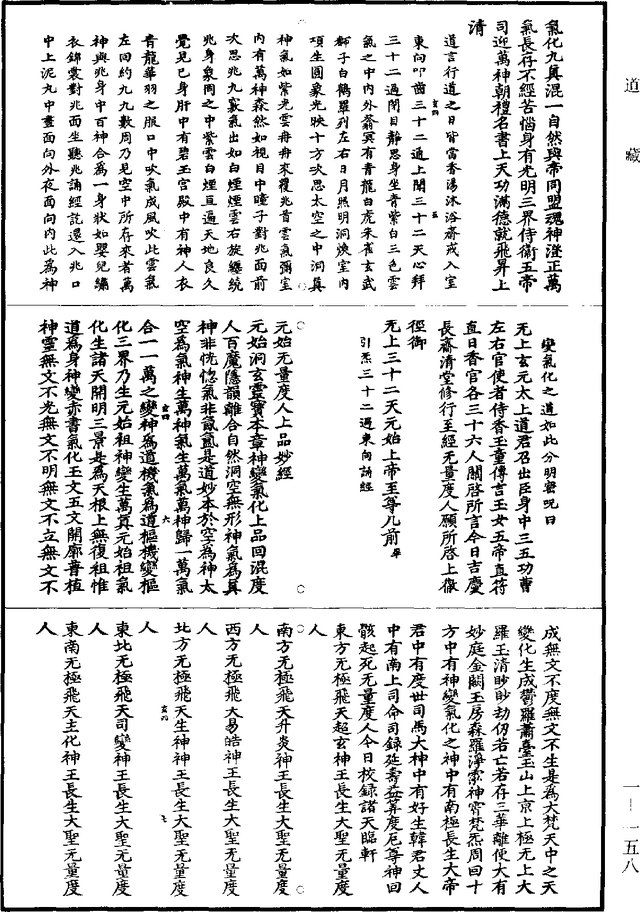 道藏
氣化九真混一自然與帝同盟魂神澄正萬
氣長存不經苦惱身有光明三界侍衛五帝
司迎萬神朝禮名書上天功滿德就飛昇上
清
道言行道之日皆當香湯沐浴齋戒入室
東向叩齒三十二通上聞三十二天心拜
三十二過閉目靜思身坐青黃白三色雲
氣之中內外蓊冥有青龍白虎朱雀玄武
獅子白鶴羅列左右日月照明洞煥室內
項生圓象光映十方次思太空之中洞真
神氣如紫光雲冉冉來覆兆首雲氣彌室
內有萬神森然如視目中瞳子對兆面前
次思兆九竅氣出如白煙煙雲右旋纏繞
兆身裊罔之中紫雲白煙亘遍天地良久
覺見己身肝中有碧玉宮殿中有神人衣
青龍華羽之服口中吹氣成風吹此雲氣
左回約九九數周乃見空中所存來者萬
神與兆身中百神合為一身狀如嬰兒繡
衣錦裳對兆面坐聽兆誦經訖還入兆口
中上泥丸中晝面向外夜面向內此為神
變氣化之道如此分明密呪曰
无上玄元太上道君召出臣身中三五功曹
左右官使者侍香玉童傳言玉女五帝直符
直日香官各三十六人關啓所言今日吉慶
長齋清堂修行至經无量度人願所啓上徹
徑御
无上三十二天元始上帝至尊几前畢
引炁三十二過東向誦經
元始无量度人上品妙經
元始洞玄靈寶本章神變氣化上品回混度
人百魔隱韻離合自然洞空無形神氣為真
神非恍惚氣非氤氳是道妙本於空為神太
空為氣神生萬神氣生萬氣萬神歸一萬氣
合一一萬之變神為道機氣為道樞機變樞
化三界乃生元始祖神變生萬真元始祖氣
化生諸天開明三景是為天根上無復祖惟
道為身神變赤書氣化玉文五文開廓普植
神靈無文不光無文不明無文不立無文不
成無文不度無文不生是為大梵天中之天
變化生成鬱羅蕭臺玉山上京上極无上大
羅玉清眇眇劫仞若亡若存三華離便大有
妙庭金闕玉房森羅淨泓神霄梵炁周回十
方中有神變氣化之神中有南極長生大帝
君中有度世司馬大神中有好生韓君丈人
中有南上司命司錄延壽益筭度厄尊神回
骸起死无量度人今日校錄諸天臨軒
東方无極飛天超玄神王長生大聖无量度
人
南方无極飛天升炎神王長生大聖无量度
人
西方无極飛天易皓神王長生大聖无量度
人
北方无極飛天生神神王長生大聖无量度
人
東北无極飛天司變神王長生大聖无量度
人
東南无極飛天主化神王長生大聖无量度
人
一—一五八